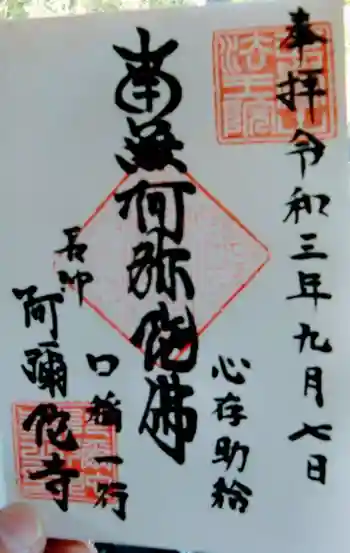 奉拝 令和三年九月七日
法王院
心存助給
南無阿弥陀佛
口稱一行
阿彌陀寺